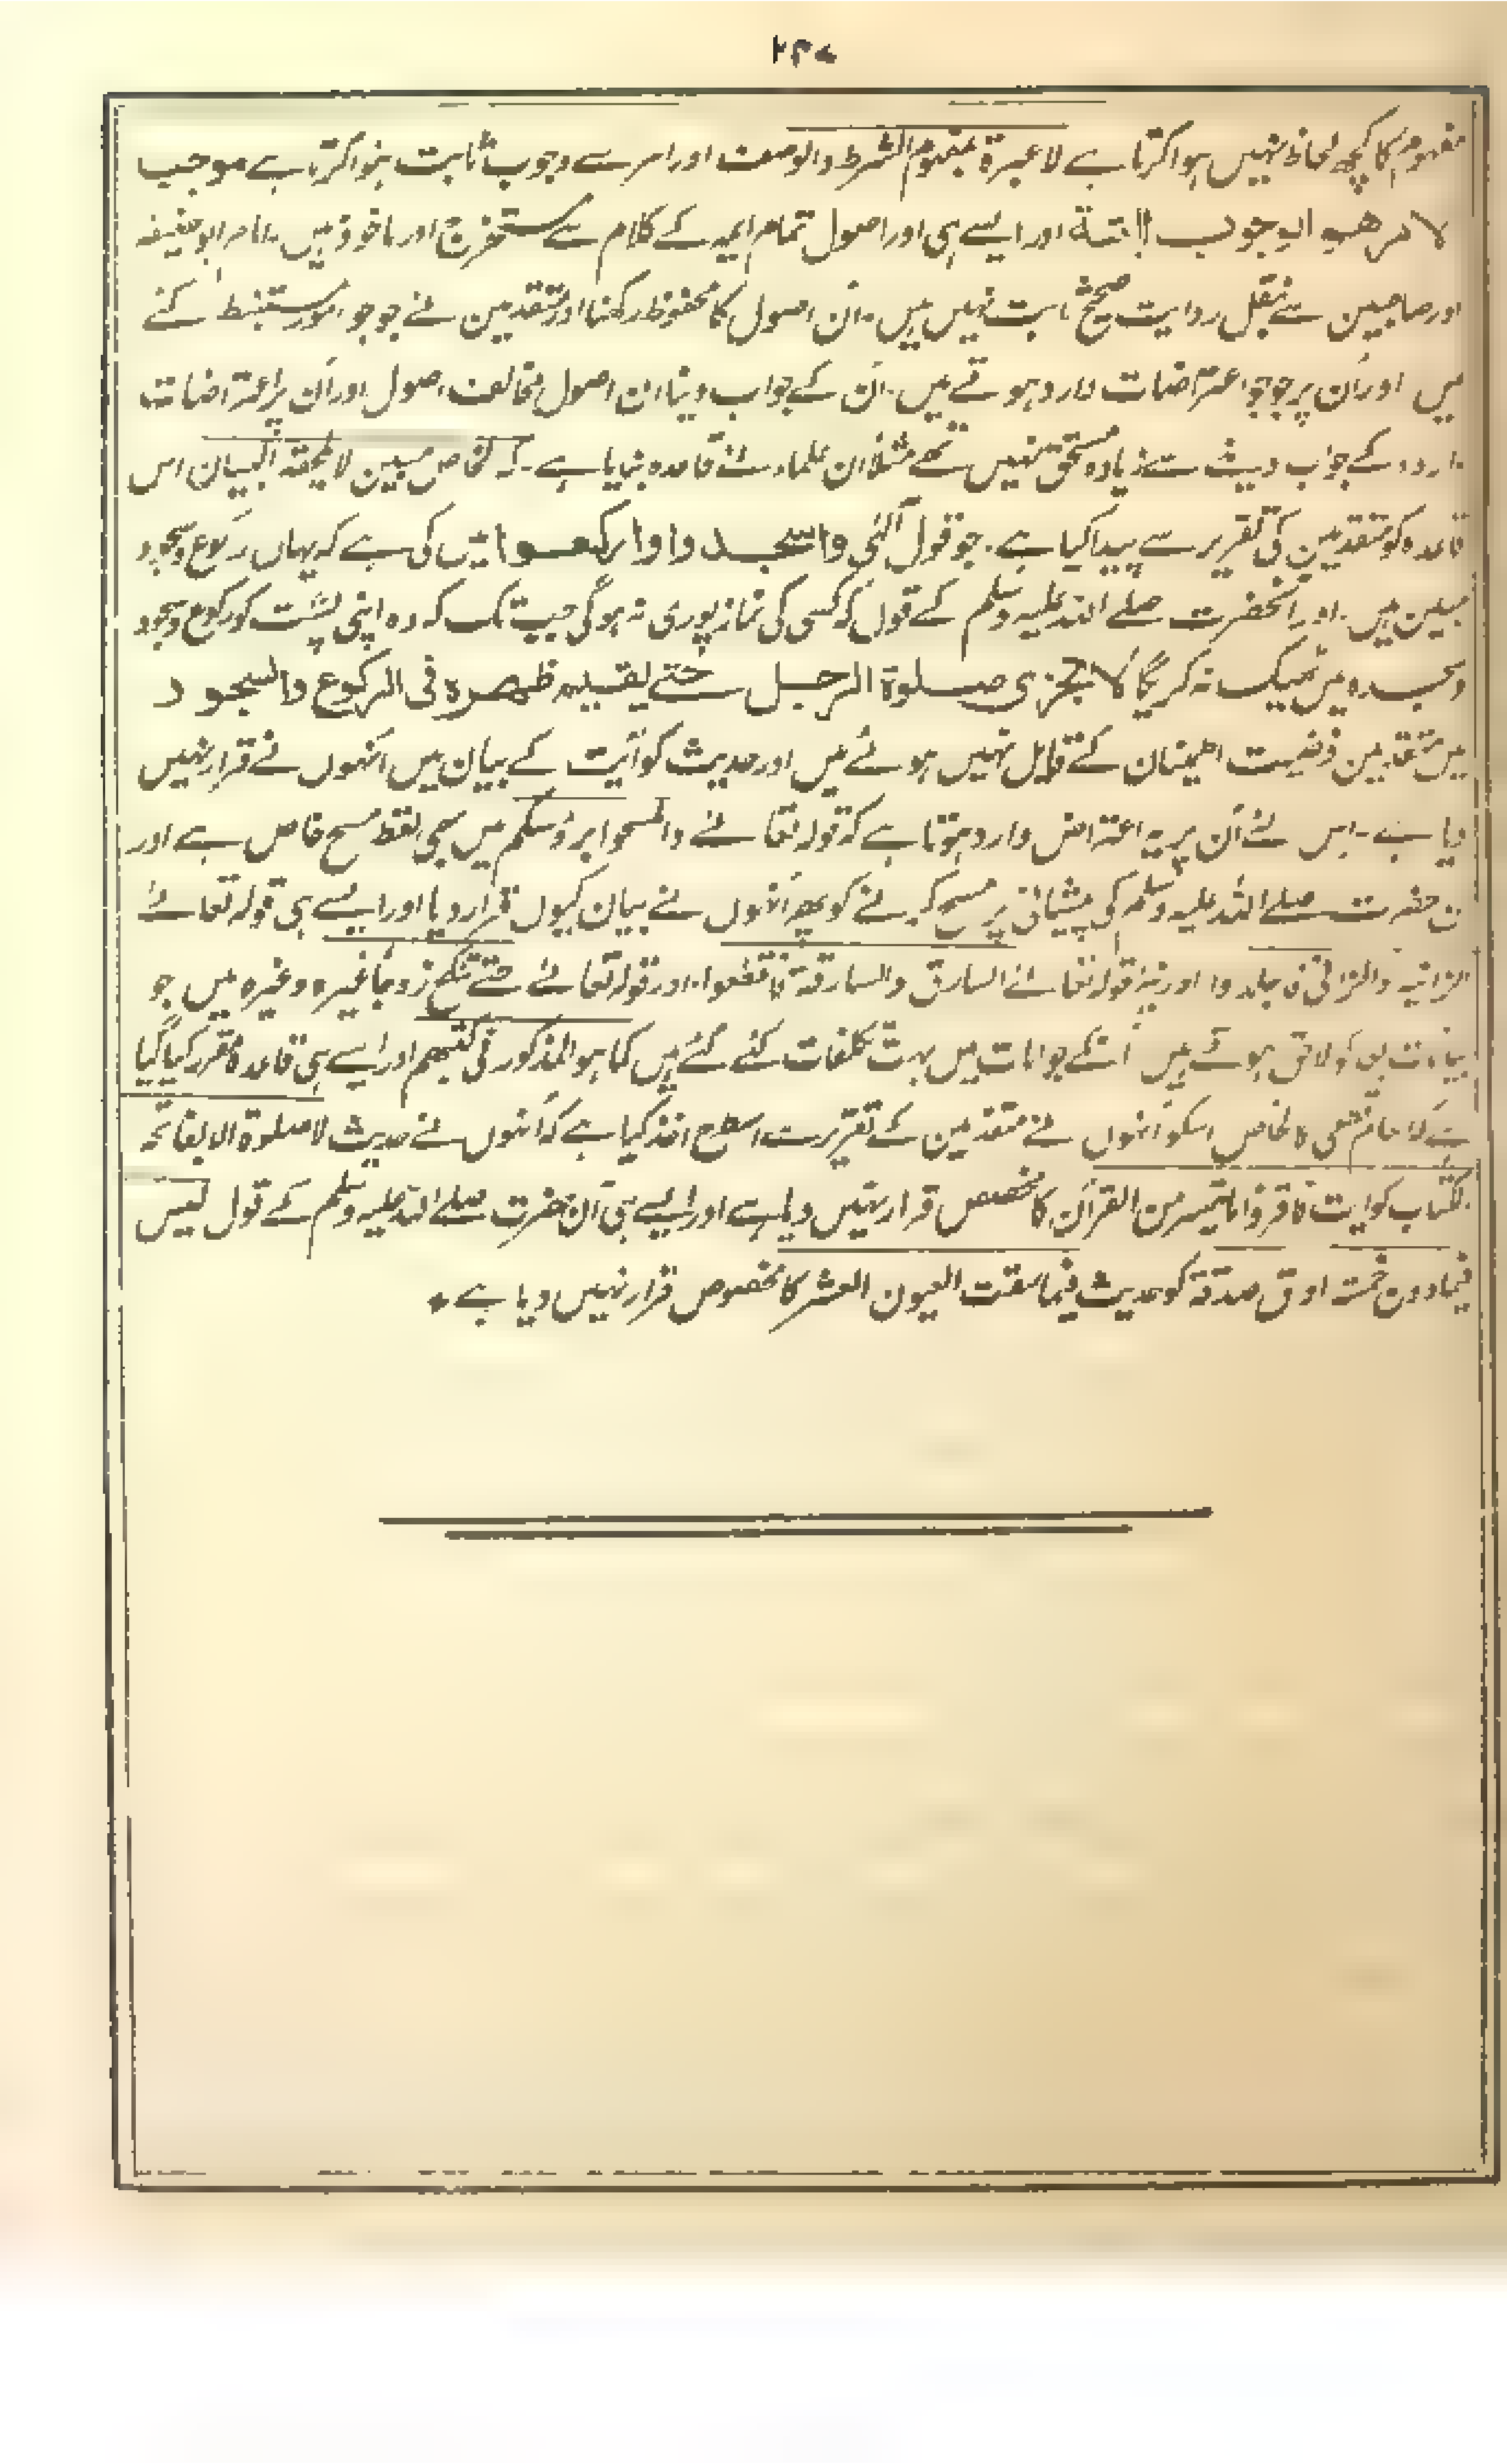 مفہوم کا کچھ لحاظ نہیں ہوا کرتا ہے لا عبرة بمفہوم الشرط والوصف اور امر سے وجوب ثابت ہوا کرتا ہے موجب
الامر ھو الوجوب البتة اور ایسے ہی اور اصول تمام ائمہ کے کلام سے مستخرج اور ماخوذ ہیں۔ امام ابو حنیفہ
اور صاحبین سے بنقل روایت صحیح ثابت نہیں ہیں۔ ان اصول کا محفوظ رکھنا اور متقدمین نے جو جو امور مستنبط کئے
ہیں اور اُن پر جو جو اعتراضات وارد ہوتے ہیں۔ اُن کے جواب دینا ان اصول مخالف اصول اور اُن پر اعتراضات
واردہ کے جواب دینے سے زیادہ مستحق نہیں تھے مثلاً ان علماء نے قاعدہ بنایا ہے۔ کہ الخاص مبین لا یلحقہ البیان اس
قاعدہ کو متقدمین کی تقریر سے پیدا کیا ہے۔ جو قول الٰہی واسجدوا وارکعوا میں کی ہے کہ یہاں رکوع و سجود
مبین ہیں۔ اور آنحضرت صلے اللہ علیہ وسلم کے قول کہ کسی کی نماز پوری نہ ہوگی جب تک کہ وہ اپنی پشت کو رکوع و سجود
و سجدہ میں ٹھیک نہ کریگا لا یجزی صلوة الرجل حتے یقیم ظھرہ فی الرکوع والسجود
میں متقدمین فرضیت اطمینان کے قایل نہیں ہوئے ہیں اور حدیث کو آیت کے بیان میں اُنہوں نے قرار نہیں
دیا ہے۔ اس لئے اُن پر یہ اعتراض وارد ہوتا ہے کہ قولہ تعالے وامسحوا برؤسکم میں بھی لفظ مسح خاص ہے اور
ن حضرت صلے اللہ علیہ وسلم کی پیشانی پر مسح کرنے کو پھر اُنہوں نے بیان کیوں قرار دیا اور ایسے ہی قولہ تعالے
الزانیہ والزانی فاجلدوا اور نیز قولہ تعالے السارق والسارقة فاقطعوا۔ اور قولہ تعالے حتے تنکح زوجاً غیرہ وغیرہ میں جو
بیانات بعد کو لاحق ہوئے ہیں اُنکے جوابات میں بہت تکلفات کئے گئے ہیں کما ہو المذکور فی کتبہم اور ایسے ہی قاعدہ مقرر کیا گیا
ہے کہ العام قطعی کالخاص اسکو اُنہوں نے متقدمین کے تقریر سے اسطرح اخذ کیا ہے کہ اُنہوں نے حدیث لا صلوة الا بفاتحہ
الکتاب کو آیت فاقرؤا ما تیسر من القرآن کا مخصص قرار نہیں دیا ہے اور ایسے ہی آن حضرت صلے اللہ علیہ وسلم کے قول لیس
فیما دون خمسة اوق صدقة کو حدیث فیما سقت العیون العشر کا مخصوص قرار نہیں دیا ہے